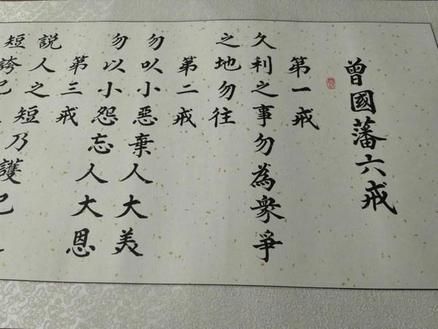 曾國藩六戒
第一戒
久利之事勿為衆爭
之地勿往
第二戒
勿以小惡棄人大美
勿以小怨忘人大恩
第三戒
説人之短乃護己
短誇己